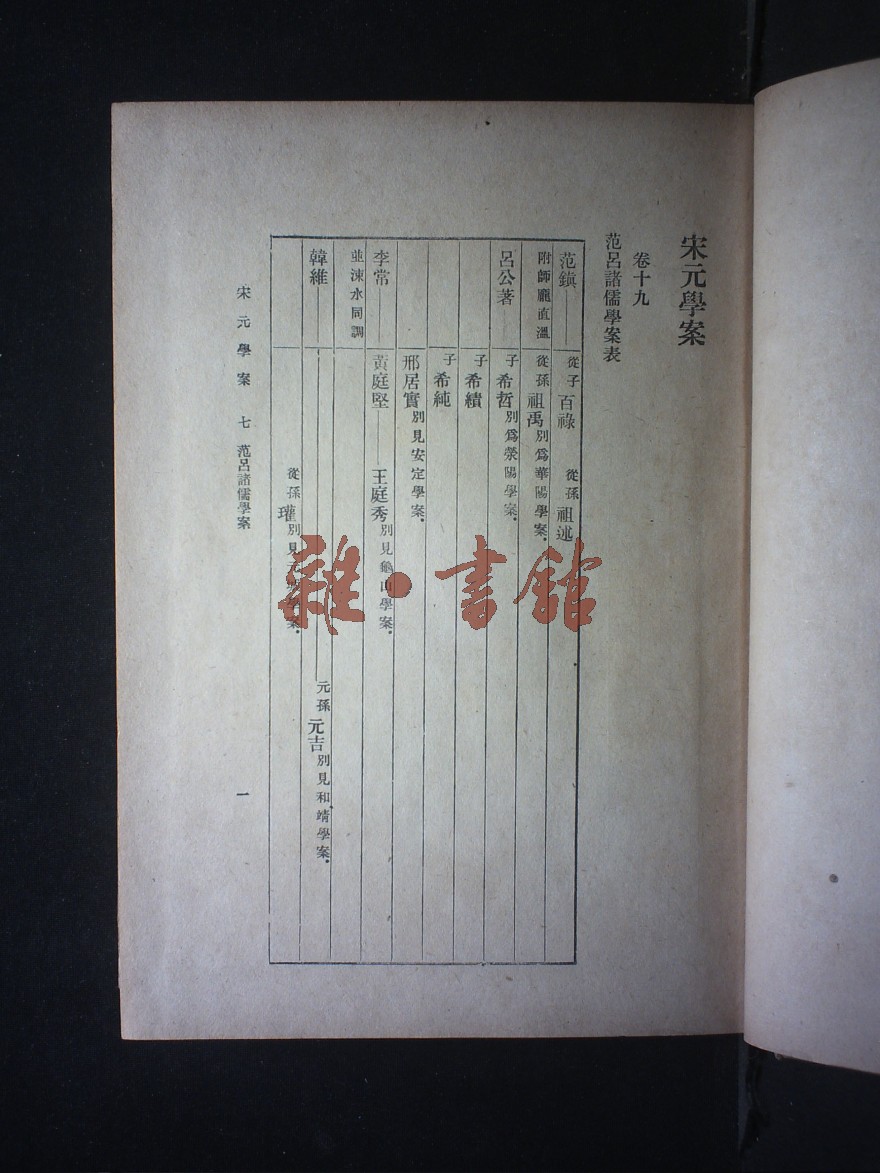 宋元學案
卷十九
范呂諸儒學案表
范鎭 從子 百祿 從孫 祖述
附師龐直溫 從孫 祖禹 別爲華陽學案.
呂公著 子 希哲 別爲滎陽學案.
子 希績
子 希純
邢居實 別見安定學案.
李常 黃庭堅 王庭秀 別見龜山學案.
並涑水同調
韓維 元孫 元吉 別見和靖學案.
從孫 瓘 別見元城學案.
宋元學案 七 范呂諸儒學案 一
雜·書館